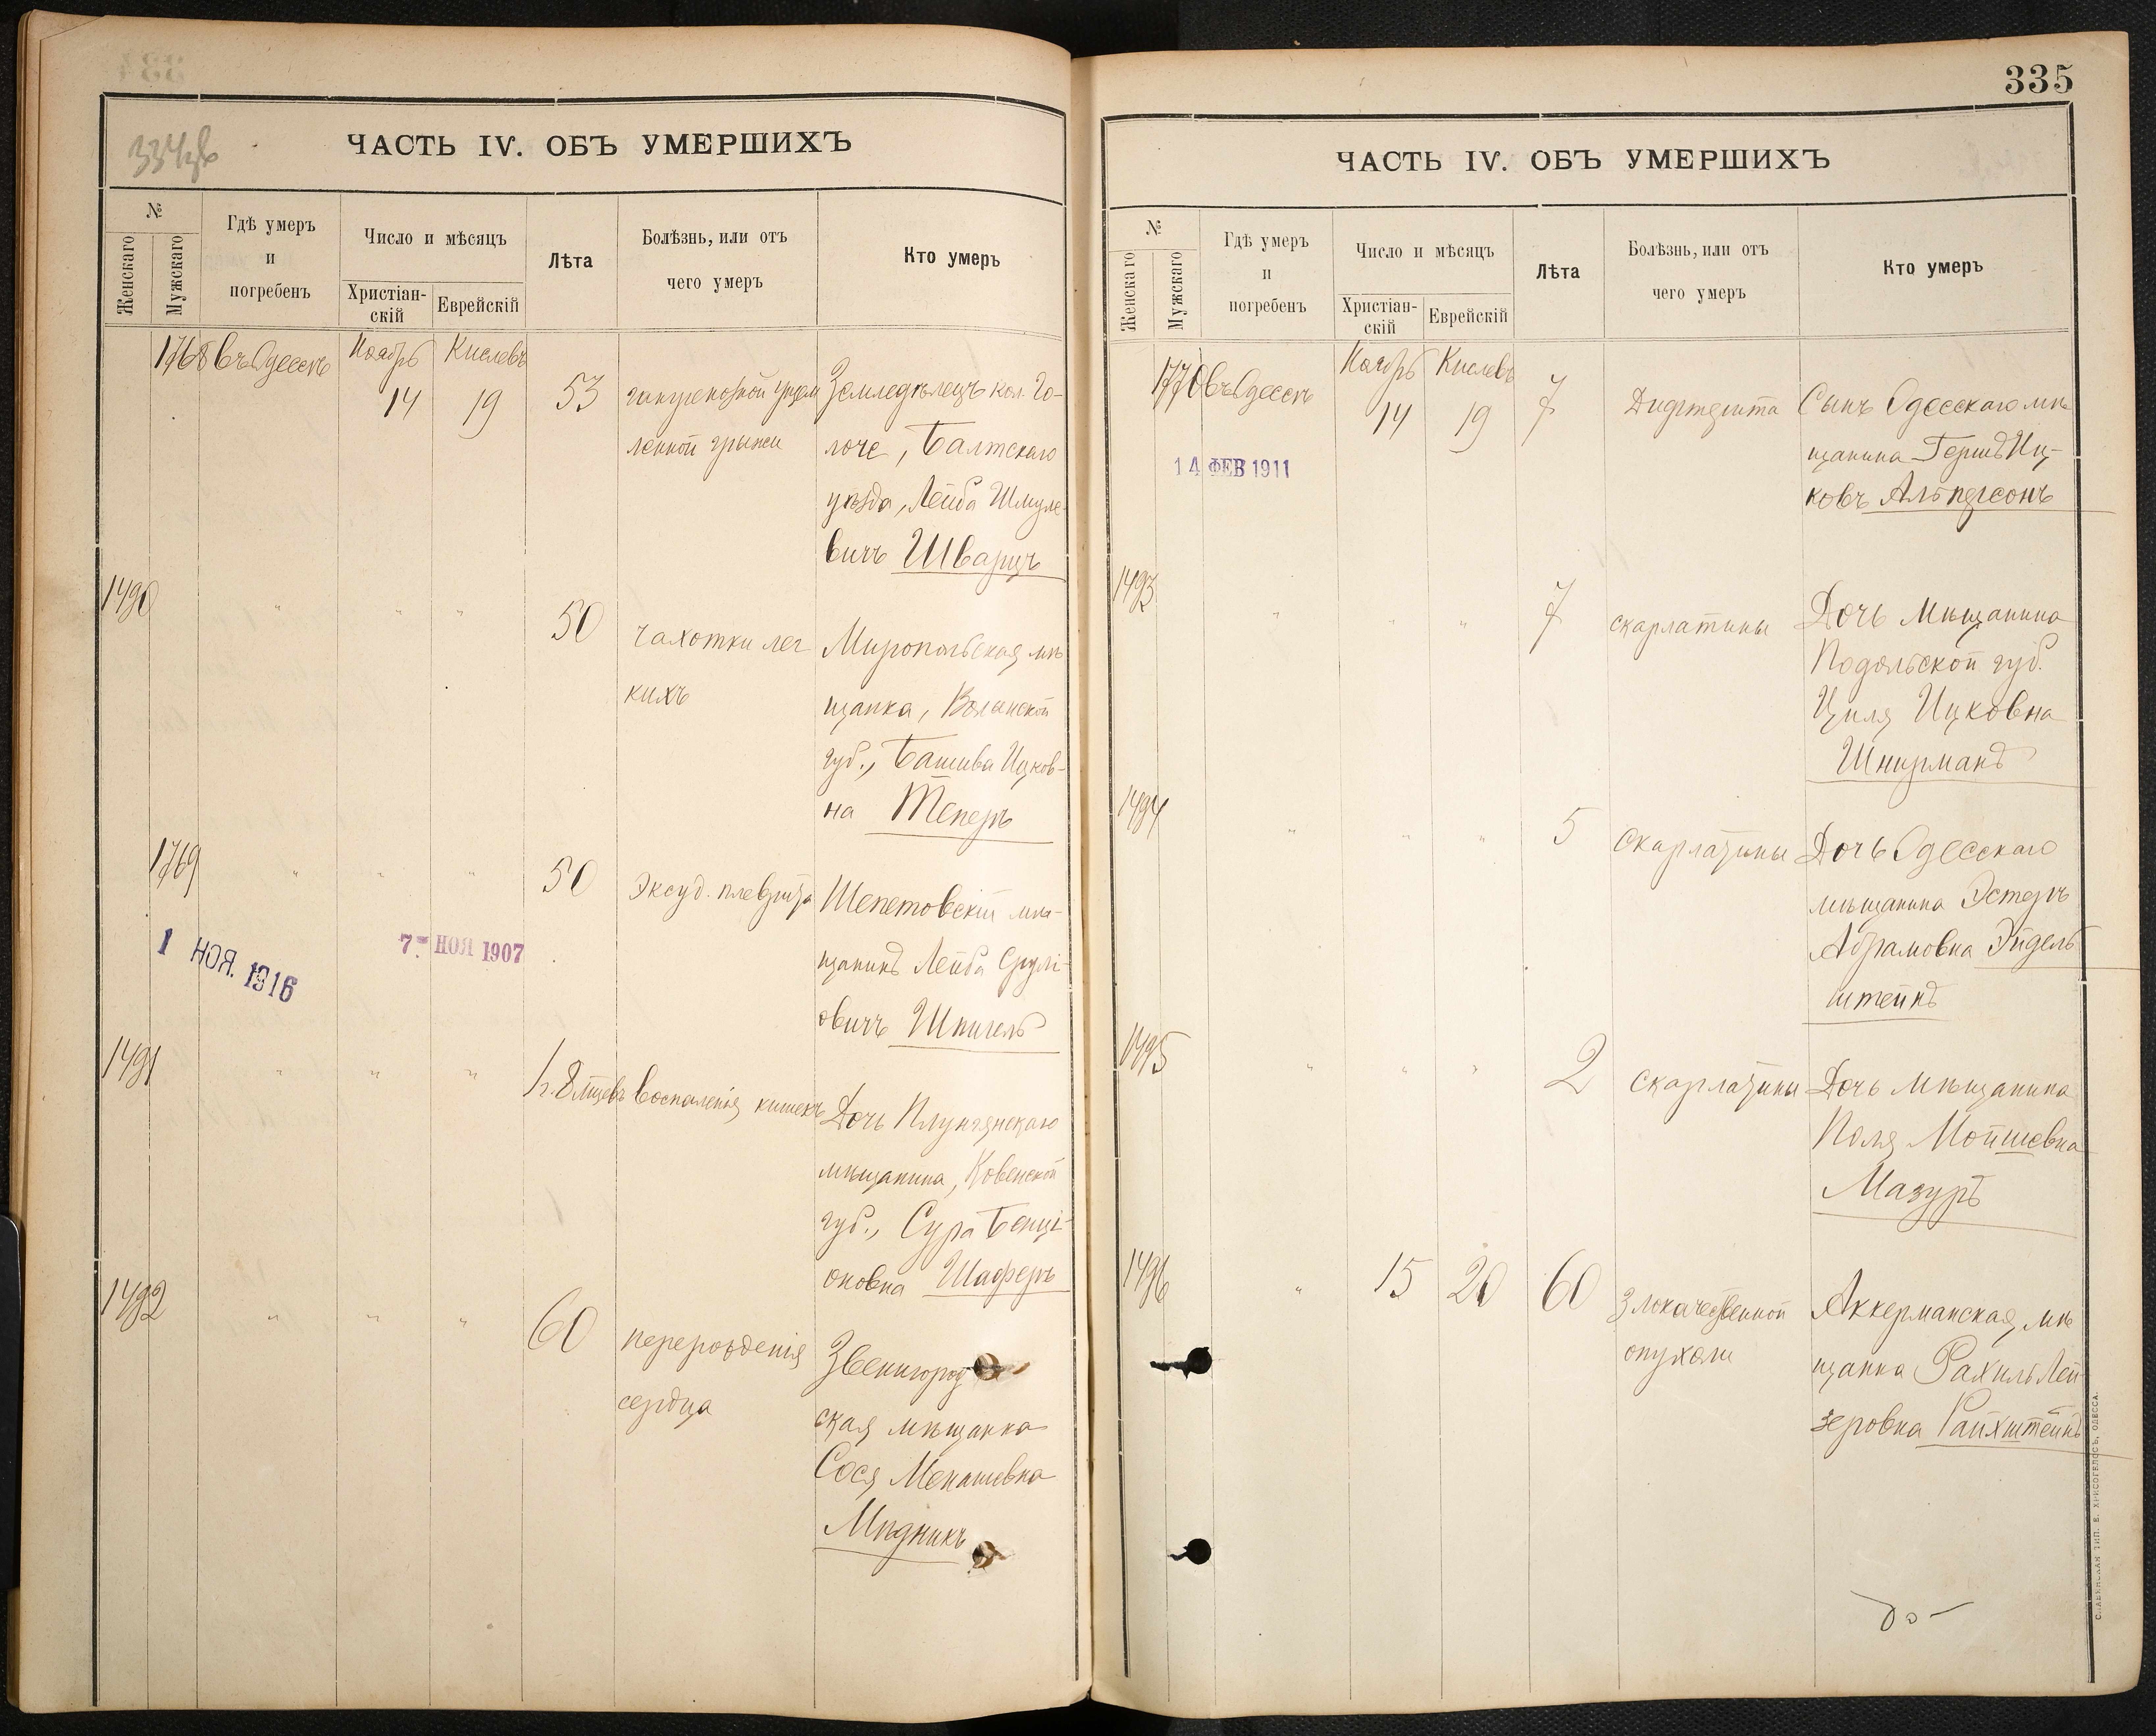 334 об
ЧАСТЬ IV. ОБЪ УМЕРШИХЪ
№
Женскаго
Мужскаго
Гдѣ умеръ
и
погребенъ
Число и мѣсяцъ
Христіан-
скій
Еврейскій
Лѣта
Болѣзнь, или отъ
чего умеръ
Кто умеръ
1768 въ Одессѣ Ноябрь Кислевъ
14 19 53 гангренозной ущем Земледѣлецъ кол. Го-
ленной грыжи лоче, Балтскаго
уѣзда, Лейба Шмуле-
вичъ Шварцъ
1490 " " " 50 чахотки лег Миропольская мѣ
кихъ щанка, Волынской
губ., Башива Ицков-
на Теперъ
1769 " " " 50 Эксуд. плеврита Шепетовскій мѣ-
1 НОЯ. 1916 7 НОЯ 1907 щанинъ Лейба Срулі-
овичъ Шпигель
1491 " " " 1 г. 8 мѣсецъ воспаленія кишекъ Дочь Плунгянскаго
мѣщанина, Ковенской
губ., Сура Бенці-
оновна Шаферъ
1492 " " " 60 перерожденія Звенигород
сердца ская мѣщанка
Сося Менашевна
Мидникъ
335
ЧАСТЬ IV. ОБЪ УМЕРШИХЪ
№
Женскаго
Мужскаго
Гдѣ умеръ
и
погребенъ
Число и мѣсяцъ
Христіан-
скій
Еврейскій
Лѣта
Болѣзнь, или отъ
чего умеръ
Кто умеръ
1770 въ Одессѣ Ноябрь Кислевъ
14 19 7 Дифтерита Сынъ Одесскаго мѣ
14 ФЕВ 1911 щанина Гершъ Иц-
ковъ Альперсонъ
1493 " " " 7 скарлатины Дочь мѣщанина
Подольской губ.
Циля Ицковна
Шнирманъ
1494 " " " 5 скарлатины Дочь Одесскаго
мѣщанина Эстеръ
Абрамовна Эйдель
штейнъ
1495 " " " 2 скарлатины Дочь мѣщанина
Поля Мойшевна
Мазуръ
1496 " 15 20 60 Злокачественной Аккерманская мѣ
опухоли щанка Рахиль Лей
зеровна Райхштейнъ
СЛАВЯНСКАЯ ТИП. Е. ХРИСОГЕЛОСЪ, ОДЕССА.